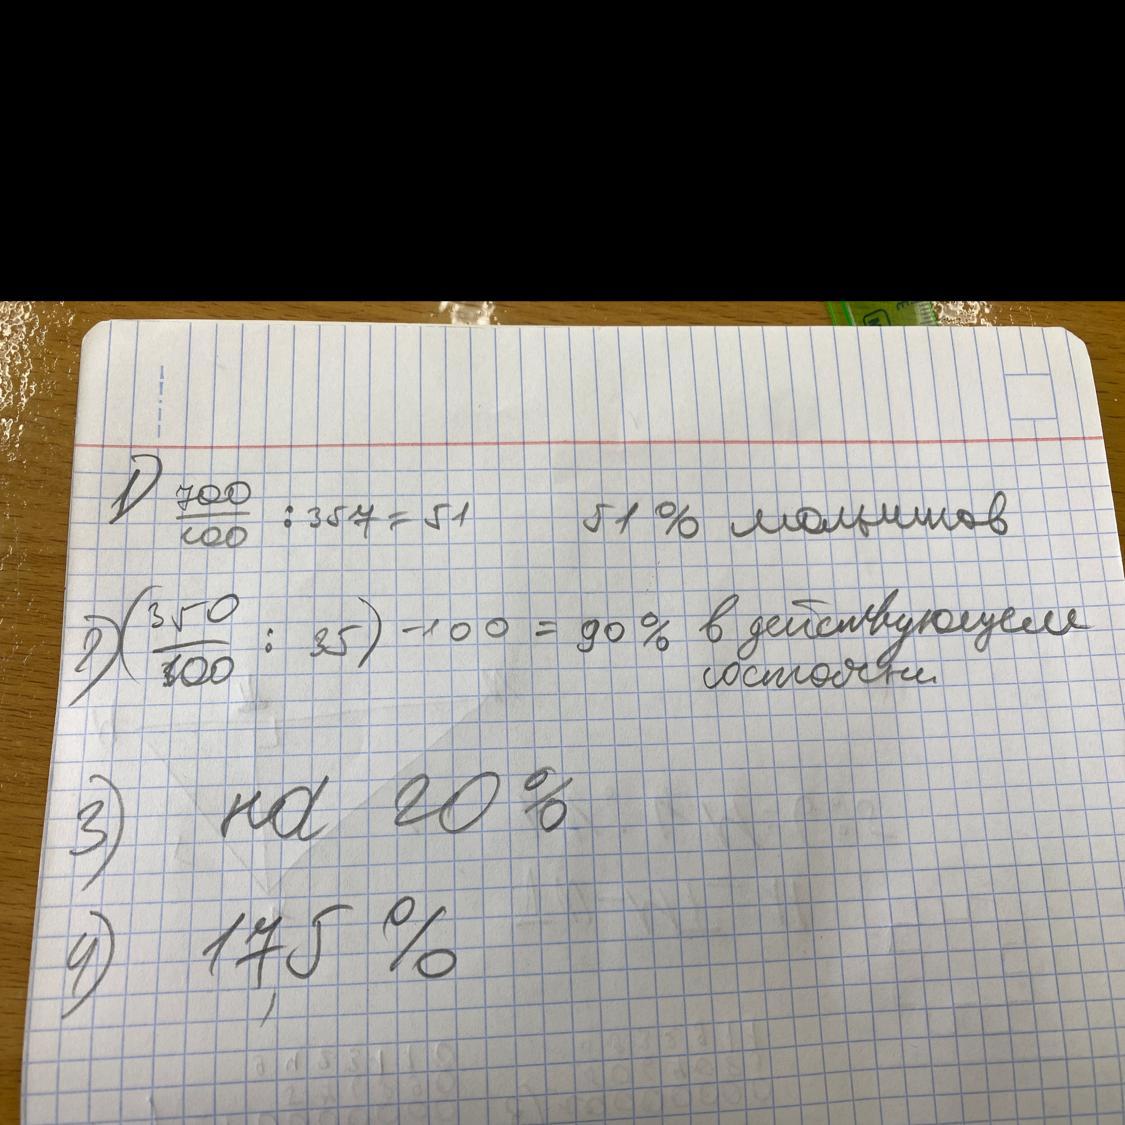 1) 700/100 : 357 = 51 51% мальчиков
2) (350/100 : 35) - 100 = 90% в действующем
состоянии
3) на 20%
4) 17,5%